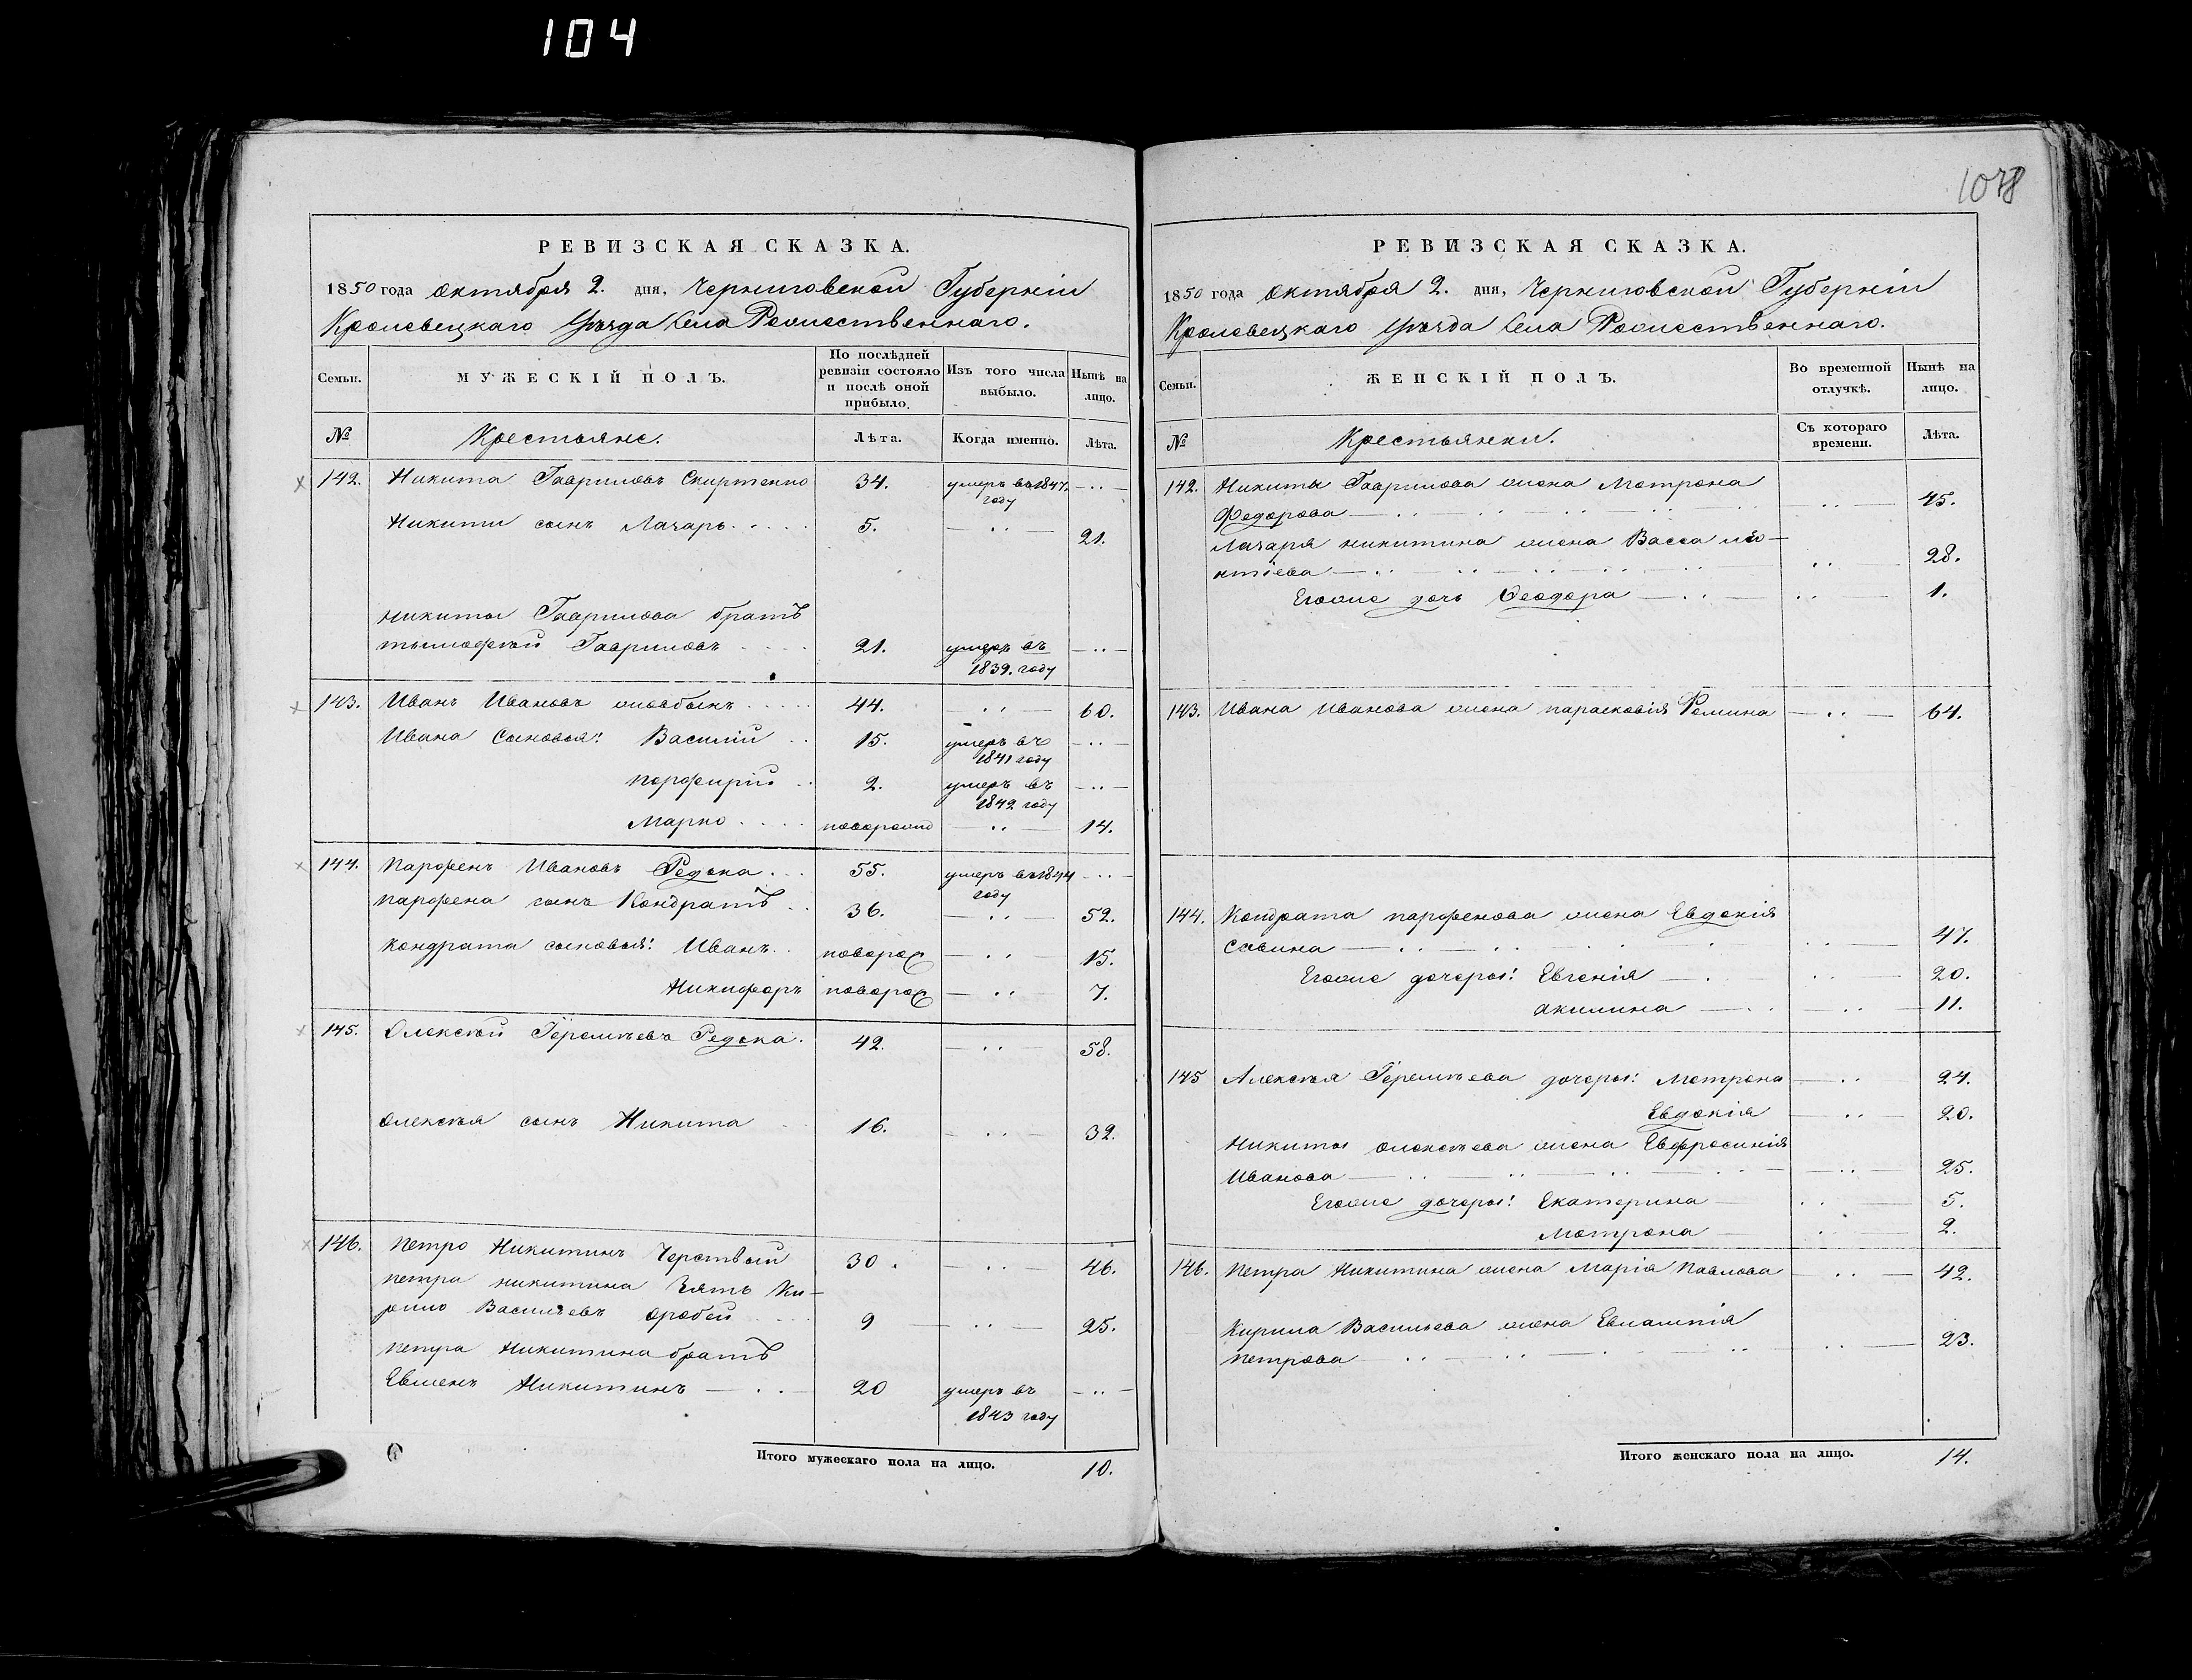 104
1078
РЕВИЗСКАЯ СКАЗКА.
1850 года октября 2. дня, Черниговской Губерніи
Кролевецкаго Уѣзда Села Рожественнаго.
Семьи.
МУЖЕСКІЙ ПОЛЪ.
По послѣдней ревизіи состояло и послѣ оной прибыло.
Изъ того числа выбыло.
Нынѣ на лицо.
№
Крестьяне.
Лѣта.
Когда именно.
Лѣта.
142. Никита Гавриловъ 34. умеръ въ 1847. году
Никиты сынъ Лазарь 5. 21.
Никиты Гаврилова братъ
Тымофѣй Гавриловъ 21. умеръ въ
1839. году
143. Иванъ Ивановъ 44. 60.
Ивана Сыновья: Василій 15. умеръ въ
1841 году
Порфирій 2. умеръ въ
1842 году
Марко новорожд 14.
144. Парфенъ Ивановъ Редька. 55. умеръ въ 1844
году
Парфена сынъ Кондратъ 36. 52.
Кондрата сыновья: Иванъ новорож 15.
Никифоръ новорож 7.
145. Олексѣй Іеремѣевъ Редька. 42. 58.
Олексѣя сынъ Никита 16. 32.
146. Петро Никитинъ Черствый 30. 46.
Петра Никитина Зять Ки-
рило Васильевъ 9 25.
Петра Никитина братъ
Евменъ Никитинъ 20 умеръ въ
1843 году
Итого мужескаго пола на лицо. 10.
РЕВИЗСКАЯ СКАЗКА.
1850 года октября 2. дня, Черниговской Губерніи
Кролевецкаго Уѣзда Села Рожественнаго.
Семьи.
ЖЕНСКІЙ ПОЛЪ.
Во временной отлучкѣ.
Нынѣ на лицо.
№
Крестьянки.
Съ котораго времени.
Лѣта.
142. Никиты Гаврилова жена Мотрона
Федорова 45.
Лазаря Никитина жена Васса
28.
Егоже дочь Феодора 1.
143. Ивана Иванова жена Парасковія Фомина 64.
144. Кондрата Парфенова жена Евдокія
Савина 47.
Егоже дочеры: Евгенія 20.
Акилина 11.
145 Алексѣя Іеремѣева дочеры: Мотрона 24.
Евдокія 20.
Никиты Олексѣева жена Евфросинія
Иванова 25.
Егоже дочеры: Екатерина 5.
Мотрона 2.
146. Петра Никитина жена Марія Павлова 42.
Кирила Васильева жена Евлампія
Петрова 23.
Итого женскаго пола на лицо. 14.